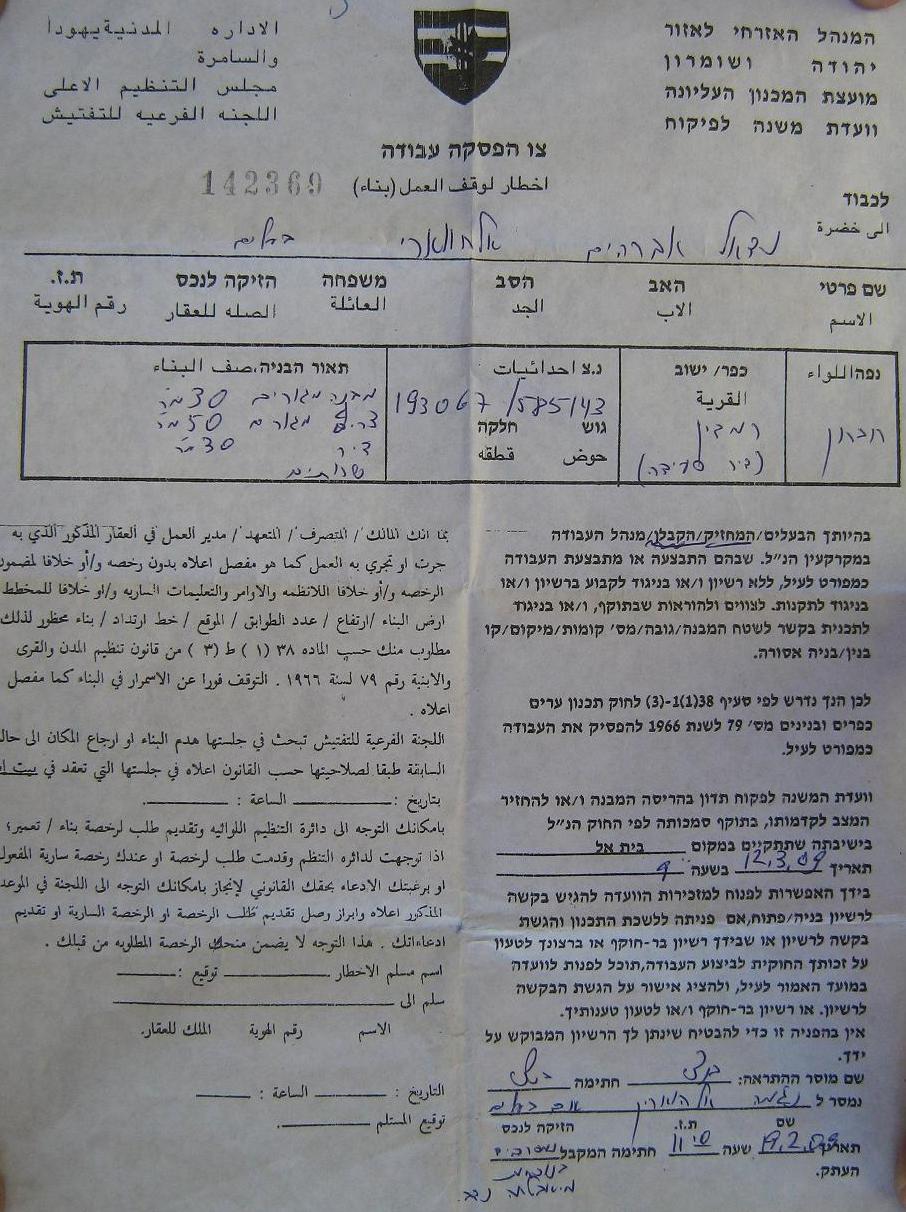 המנהל האזרחי לאזור
יהודה ושומרון
מועצת המכנון העליונה
וועדת משנה לפיקוח
الاداره المدنية يهودا
والسامرة
مجلس التنظيم الاعلى
اللجنه الفرعيه للتفتيش
צו הפסקה עבודה
اخطار لوقف العمل (بناء)
142369
לכבוד
الى خضرة
נידאל אברהים אלחוארי בעלים
שם פרטי האב הסב משפחה הזיקה לנכס ת.ז.
الاسم الاب الجد العائلة الصله للعقار رقم الهوية
נפה اللواء כפר/ ישוב נ.צ احداثيات תאור הבניה، صف البناء
القرية
חברון
רמדין
193067/585143
גוש חלקה
حوض قطقه
מבנה מגורים 30 מר
צריף מגורים 50 מר
דיר 30 מר
שרותים
בהיותך הבעלים/המחזיק/הקבלן/מנהל העבודה
במקרקעין הנ"ל. שבהם התבצעה או מתבצעת העבודה
כמפורט לעיל, ללא רשיון ו/או בניגוד לקבוע ברשיון ו/או
בניגוד לתקנות. לצווים ולהוראות שבתוקף, ו/או בניגוד
לתכנית בקשר לשטח המבנה/גובה/מס' קומות/מיקום/קו
בנין/בניה אסורה.
לכן הנך נדרש לפי סעיף 38(1)1-(3) לחוק תכנון ערים
כפרים ובנינים מס' 79 לשנת 1966 להפסיק את העבודה
כמפורט לעיל.
וועדת המשנה לפקוח תדון בהריסה המבנה ו/או להחזיר
המצב לקדמותו, בתוקף סמכותה לפי החוק הנ"ל
בישיבתה שתתקיים במקום בית אל
תאריך 12.3.09 בשעה 9
בידך האפשרות לפנוח למזכירות הוועדה להגיש בקשה
לרשיון בניה/פתוח, אם פניתה ללשכת התכנון והגשת
בקשה לרשיון או שבידך רשיון בר-חוקף או ברצונך לטעון
על זכותך החוקית לביצוע העבודה, תוכל לפנות לוועדה
במועד האמור לעיל, ולהציג אישור על הגשת הבקשה
לרשיון. או רשיון בר-חוקף ו/או לטעון טענותיך.
אין בהפניה זו כדי להבטיח שינתן לך הרשיון המבוקש על
ידך.
שם מוסר ההתראה: חתימה
נמסר ל
שם ת.ז. הזיקה לנכס
תאריך 19.2.09 שעה 11 חתימה המקבל
העתק.
بما انك المالك/ المتصرف/ المتعهد/ مدير العمل في العقار المذكور الذي به
جرت او تجري به العمل كما هو مفصل اعلاه بدون رخصه و/أو خلافا لمضمون
الرخصه و/أو خلافا اللانظمه والاوامر والتعليمات الساريه و/او خلافا للمخطط
ارض البناء /ارتفاع / عدد الطوابق / الموقع / خط ارتداد / بناء محظور لذلك
مطلوب منك حسب الماده ٣٨ (١) ط (٣) من قانون تنظيم المدن والقرى
والابنية رقم ٧٩ لسنة ١٩٦٦ . التوقف فورا عن الاسمرار في البناء كما مفصل
اعلاه .
اللجنة الفرعية للتفتيش تبحث في جلستها هدم البناء او ارجاع المكان الى حاله
السابقة طبقا لصلاحيتها حسب القانون اعلاه في جلستها التي تعقد في بيت
بتاريخ : الساعة :
بامكانك التوجه الى دائرة التنظيم اللوائيه وتقديم طلب لرخصة بناء / تعمير؛
اذا توجهت لدائره التنظم وقدمت طلب لرخصة او عندك رخصة سارية المفعول
او برغبتك الادعاء بحقك القانوني لإنجاز بامكانك التوجه الى اللجنة في الموعد
المذكور اعلاه وابراز وصل تقديم طلب الرخصة او الرخصة السارية او تقديم
ادعاءاتك . هذا التوجه لا يضمن منحك الرخصة المطلوبه من قبلك .
اسم مسلم الاخطار توقيع :
سلم الى
الاسم رقم الهوية الملك للعقار.
التاريخ : الساعة :
توقيع المستلم